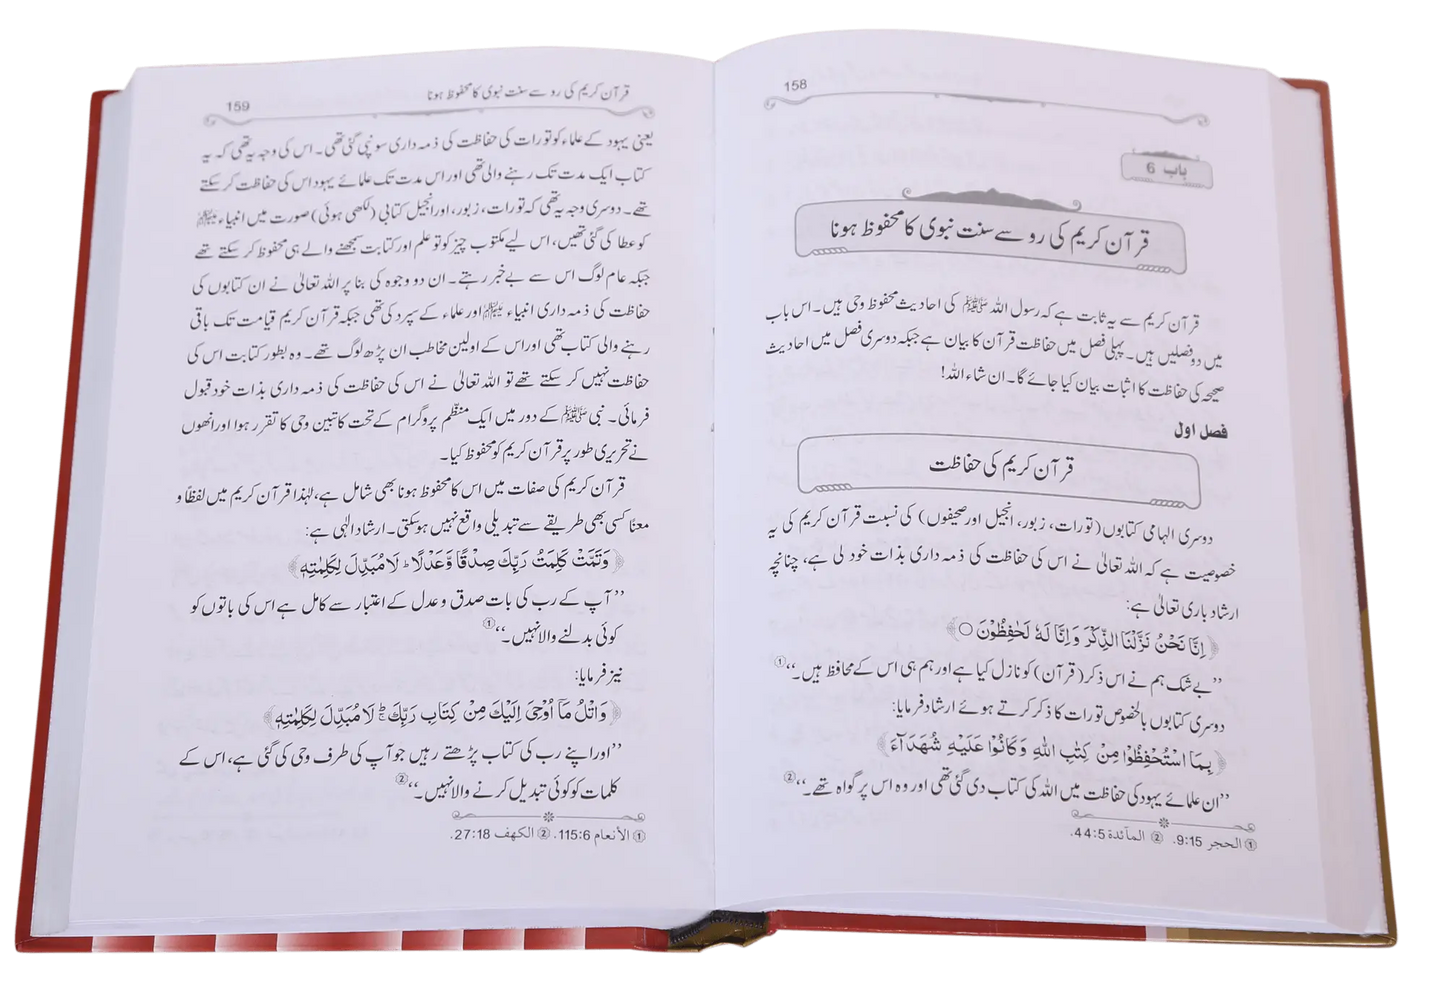 158
باب 6
قرآن کریم کی رو سے سنت نبوی کا محفوظ ہونا
قرآن کریم سے یہ ثابت ہے کہ رسول اللہ ﷺ کی احادیث محفوظ وحی ہیں۔ اس باب
میں دو فصلیں ہیں۔ پہلی فصل میں حفاظت قرآن کا بیان ہے جبکہ دوسری فصل میں احادیث
صحیحہ کی حفاظت کا اثبات بیان کیا جائے گا۔ ان شاء اللہ!
فصل اول
قرآن کریم کی حفاظت
دوسری الہامی کتابوں (تورات، زبور، انجیل اور صحیفوں) کی نسبت قرآن کریم کی یہ
خصوصیت ہے کہ اللہ تعالیٰ نے اس کی حفاظت کی ذمہ داری بذات خود لی ہے، چنانچہ
ارشاد باری تعالیٰ ہے:
﴿ اِنَّا نَحْنُ نَزَّلْنَا الذِّكْرَ وَ اِنَّا لَهٗ لَحٰفِظُوْنَ ○ ﴾
’’بے شک ہم نے اس ذکر (قرآن) کو نازل کیا ہے اور ہم ہی اس کے محافظ ہیں۔‘‘①
دوسری کتابوں بالخصوص تورات کا ذکر کرتے ہوئے ارشاد فرمایا:
﴿ بِمَا اسْتُحْفِظُوْا مِنْ كِتٰبِ اللّٰهِ وَ كَانُوْا عَلَيْهِ شُهَدَآءَ ﴾
’’ان علمائے یہود کی حفاظت میں اللہ کی کتاب دی گئی تھی اور وہ اس پر گواہ تھے۔‘‘②
① الحجر 9:15. ② المآئدة 44:5.
قرآن کریم کی رو سے سنت نبوی کا محفوظ ہونا 159
یعنی یہود کے علماء کو تورات کی حفاظت کی ذمہ داری سونپی گئی تھی۔ اس کی وجہ یہ تھی کہ یہ
کتاب ایک مدت تک رہنے والی تھی اور اس مدت تک علمائے یہود اس کی حفاظت کر سکتے
تھے۔ دوسری وجہ یہ تھی کہ تورات، زبور، اور انجیل کتابی (لکھی ہوئی) صورت میں انبیاء علیہم السلام
کو عطا کی گئی تھیں، اس لیے مکتوب چیز کو تو علم اور کتابت سمجھنے والے ہی محفوظ کر سکتے تھے
جبکہ عام لوگ اس سے بے خبر رہتے۔ ان دو وجوہ کی بنا پر اللہ تعالیٰ نے ان کتابوں کی
حفاظت کی ذمہ داری انبیاء علیہم السلام اور علماء کے سپرد کی تھی جبکہ قرآن کریم قیامت تک باقی
رہنے والی کتاب تھی اور اس کے اولین مخاطب ان پڑھ لوگ تھے۔ وہ بطور کتابت اس کی
حفاظت نہیں کر سکتے تھے تو اللہ تعالیٰ نے اس کی حفاظت کی ذمہ داری بذات خود قبول
فرمائی۔ نبی ﷺ کے دور میں ایک منظّم پروگرام کے تحت کاتبین وحی کا تقرر ہوا اور انھوں
نے تحریری طور پر قرآن کریم کو محفوظ کیا۔
قرآن کریم کی صفات میں اس کا محفوظ ہونا بھی شامل ہے، لہٰذا قرآن کریم میں لفظاً و
معنًا کسی بھی طریقے سے تبدیلی واقع نہیں ہو سکتی۔ ارشاد الٰہی ہے:
﴿ وَ تَمَّتْ كَلِمَتُ رَبِّكَ صِدْقًا وَّ عَدْلًا ؕ لَا مُبَدِّلَ لِكَلِمٰتِهٖ ﴾
’’آپ کے رب کی بات صدق و عدل کے اعتبار سے کامل ہے اس کی باتوں کو
کوئی بدلنے والا نہیں۔‘‘①
نیز فرمایا:
﴿ وَ اتْلُ مَاۤ اُوْحِيَ اِلَيْكَ مِنْ كِتَابِ رَبِّكَ ۚ لَا مُبَدِّلَ لِكَلِمٰتِهٖ ﴾
’’اور اپنے رب کی کتاب پڑھتے رہیں جو آپ کی طرف وحی کی گئی ہے، اس کے
کلمات کو کوئی تبدیل کرنے والا نہیں۔‘‘②
① الأنعام 115:6. ② الكهف 27:18.